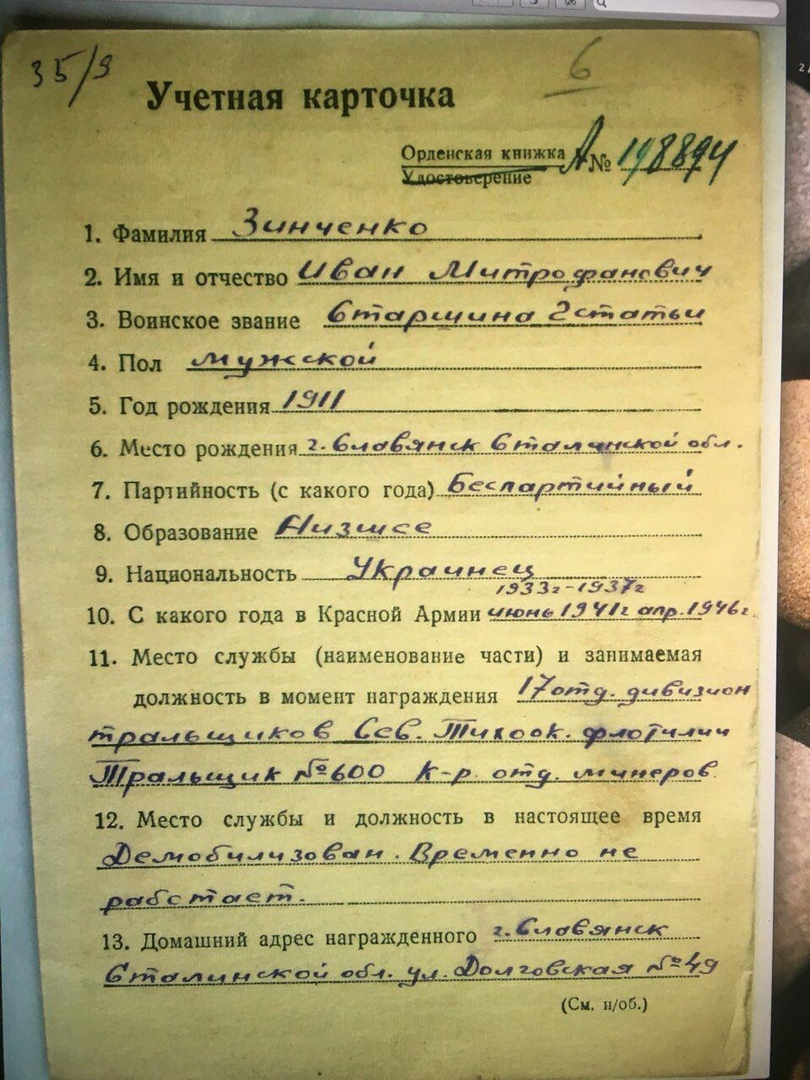 35/9
6
Учетная карточка
Орденская книжка А № 198894
Удостоверение
1. Фамилия Зинченко
2. Имя и отчество Иван Митрофанович
3. Воинское звание Старшина 2 статьи
4. Пол мужской
5. Год рождения 1911
6. Место рождения г. Славянск Сталинской обл.
7. Партийность (с какого года) Беспартийный
8. Образование Низшее
9. Национальность Украинец
1933г-1937г
10. С какого года в Красной Армии июнь 1941г апр. 1946г.
11. Место службы (наименование части) и занимаемая
должность в момент награждения 17 отд. дивизион
тральщиков Сев. Тихоок. флотилии
Тральщик №600 К-р отд. минеров
12. Место службы и должность в настоящее время
Демобилизован. Временно не
работает.
13. Домашний адрес награжденного г. Славянск
Сталинской обл. ул. Долговская №49
(См. н/об.)